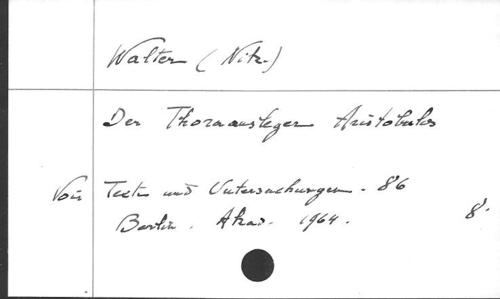 Walter (Nik.)
Der Thoraausleger Aristobulos
Voir Texte und Untersuchungen. 86
Berlin. Akad. 1964. 8°